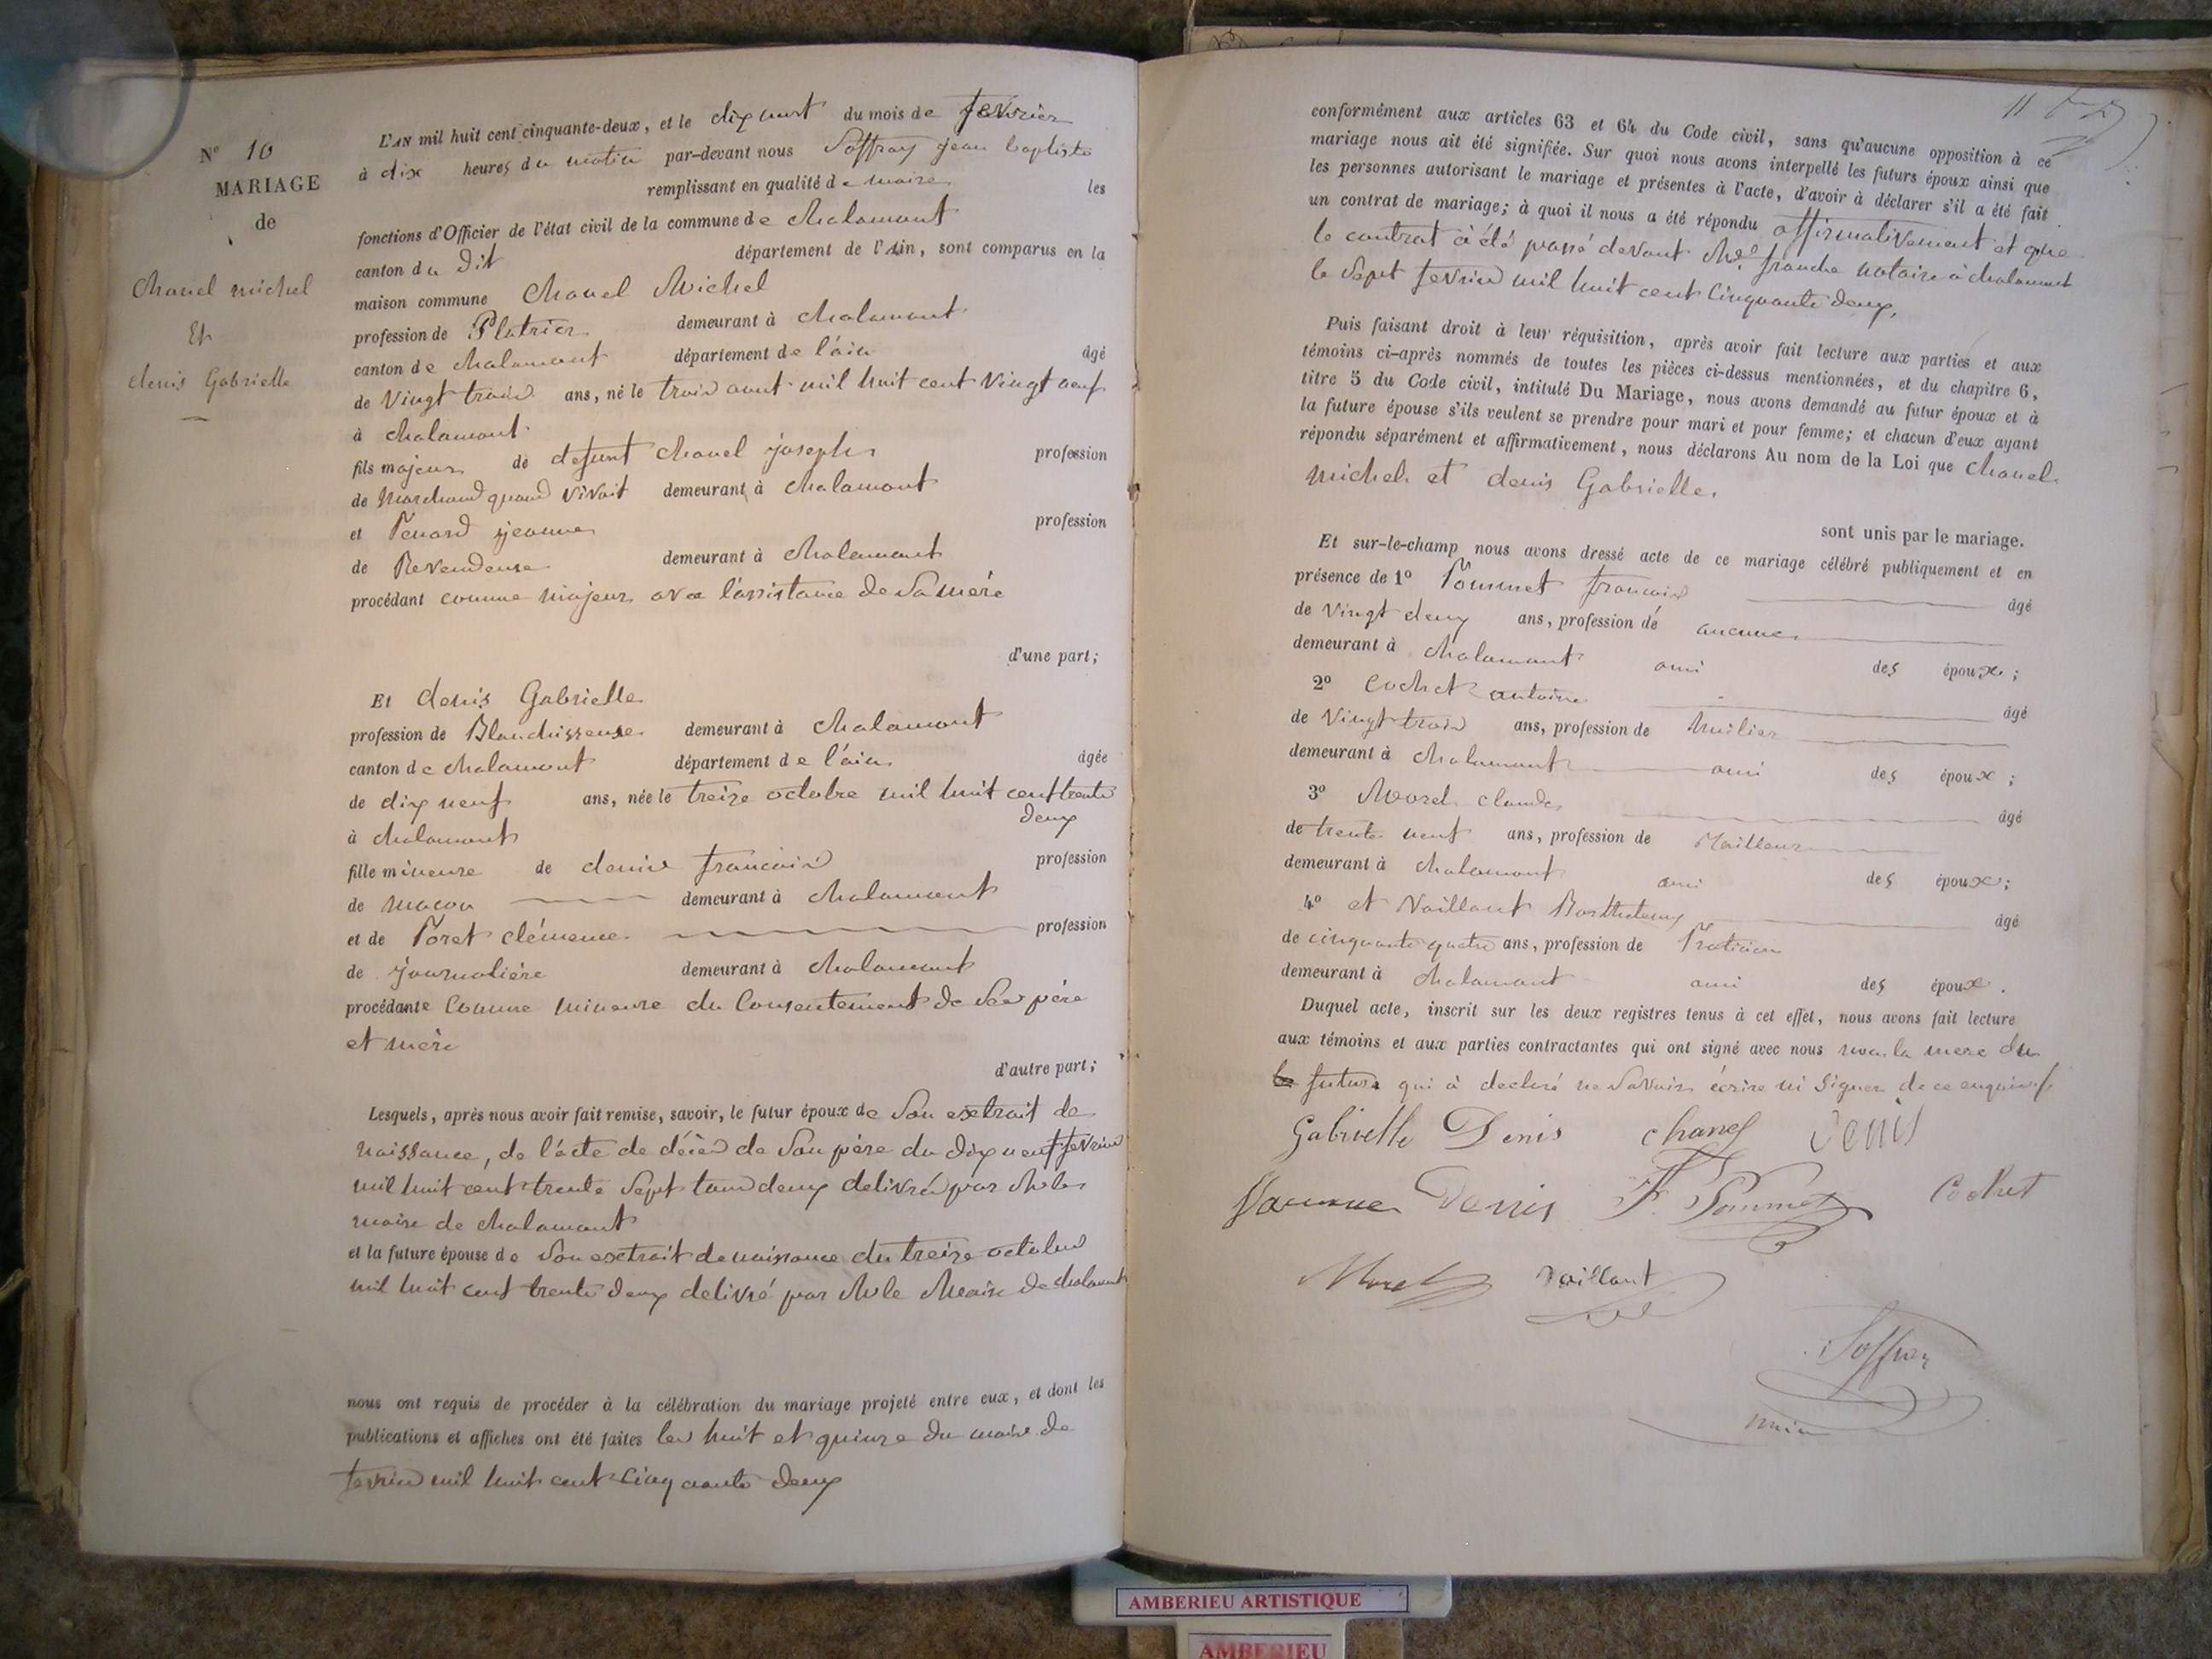 N° 10
MARIAGE
de
Chanel michel
Et
denis Gabrielle
L'AN mil huit cent cinquante-deux, et le dix huit du mois de fevrier
à dix heures du matin par-devant nous Soffray jean baptiste
remplissant en qualité de maire les
fonctions d'Officier de l'état civil de la commune de chalamont
canton du dit département de l'Ain, sont comparus en la
maison commune Chanel Michel
profession de Platrier demeurant à chalamont
canton de chalamont département de l'ain âgé
de Vingt trois ans, né le trois aout mil huit cent Vingt neuf
à chalamont
fils majeur de defunt chanel joseph profession
de Marchand quand vivait demeurant à chalamont
et Penard jeanne profession
de Revendeuse demeurant à chalamont
procédant comme majeur avec l'assistance de Sa mère
d'une part;
Et denis Gabrielle
profession de Blanchisseuse demeurant à chalamont
canton de chalamont département de l'ain âgée
de dix neuf ans, née le treize octobre mil huit cent trente
deux
à chalamont
fille mineure de denis francois profession
de macon demeurant à chalamont
et de Poret clémence profession
de journalière demeurant à chalamont
procédante Comme mineure du Consentement de Ses père
et mère
d'autre part;
Lesquels, après nous avoir fait remise, savoir, le futur époux de Son extrait de
naissance, de l'acte de décès de Son père du dix neuf fevrier
mil huit cent trente Sept tous deux delivrés par Mr le
maire de chalamont
et la future épouse de Son extrait de naissance du treize octobre
mil huit cent trente deux delivré par Mr le Maire de chalamont
nous ont requis de procéder à la célébration du mariage projeté entre eux, et dont les
publications et affiches ont été faites les huit et quinze du mois de
fevrier mil huit cent Cinquante deux
11
conformément aux articles 63 et 64 du Code civil, sans qu'aucune opposition à ce
mariage nous ait été signifiée. Sur quoi nous avons interpellé les futurs époux ainsi que
les personnes autorisant le mariage et présentes à l'acte, d'avoir à déclarer s'il a été fait
un contrat de mariage; à quoi il nous a été répondu affirmativement et que
le contrat à été passé devant Me franche notaire à chalamont
le Sept fevrier mil huit cent Cinquante deux,
Puis faisant droit à leur réquisition, après avoir fait lecture aux parties et aux
témoins ci-après nommés de toutes les pièces ci-dessus mentionnées, et du chapitre 6,
titre 5 du Code civil, intitulé Du Mariage, nous avons demandé au futur époux et à
la future épouse s'ils veulent se prendre pour mari et pour femme; et chacun d'eux ayant
répondu séparément et affirmativement, nous déclarons Au nom de la Loi que Chanel
michel et denis Gabrielle.
sont unis par le mariage.
Et sur-le-champ nous avons dressé acte de ce mariage célébré publiquement et en
présence de 1° Pommet francois âgé
de Vingt deux ans, profession de aucune
demeurant à chalamont ami des époux;
2° Cochet antoine âgé
de Vingt trois ans, profession de huilier
demeurant à chalamont ami des époux;
3° Morel claude âgé
de trente neuf ans, profession de Tailleur
demeurant à chalamont ami des époux;
4° et Vaillant Barthelemy âgé
de cinquante quatre ans, profession de Praticien
demeurant à chalamont ami des époux.
Duquel acte, inscrit sur les deux registres tenus à cet effet, nous avons fait lecture
aux témoins et aux parties contractantes qui ont signé avec nous non la mere du
futur qui à declaré ne Savoir écrire ni Signer de ce enquis
Gabrielle Denis chanel Denis
Denis F. Pommet Cochet
Morel Vaillant
Soffray
maire
AMBERIEU ARTISTIQUE
AMBERIEU